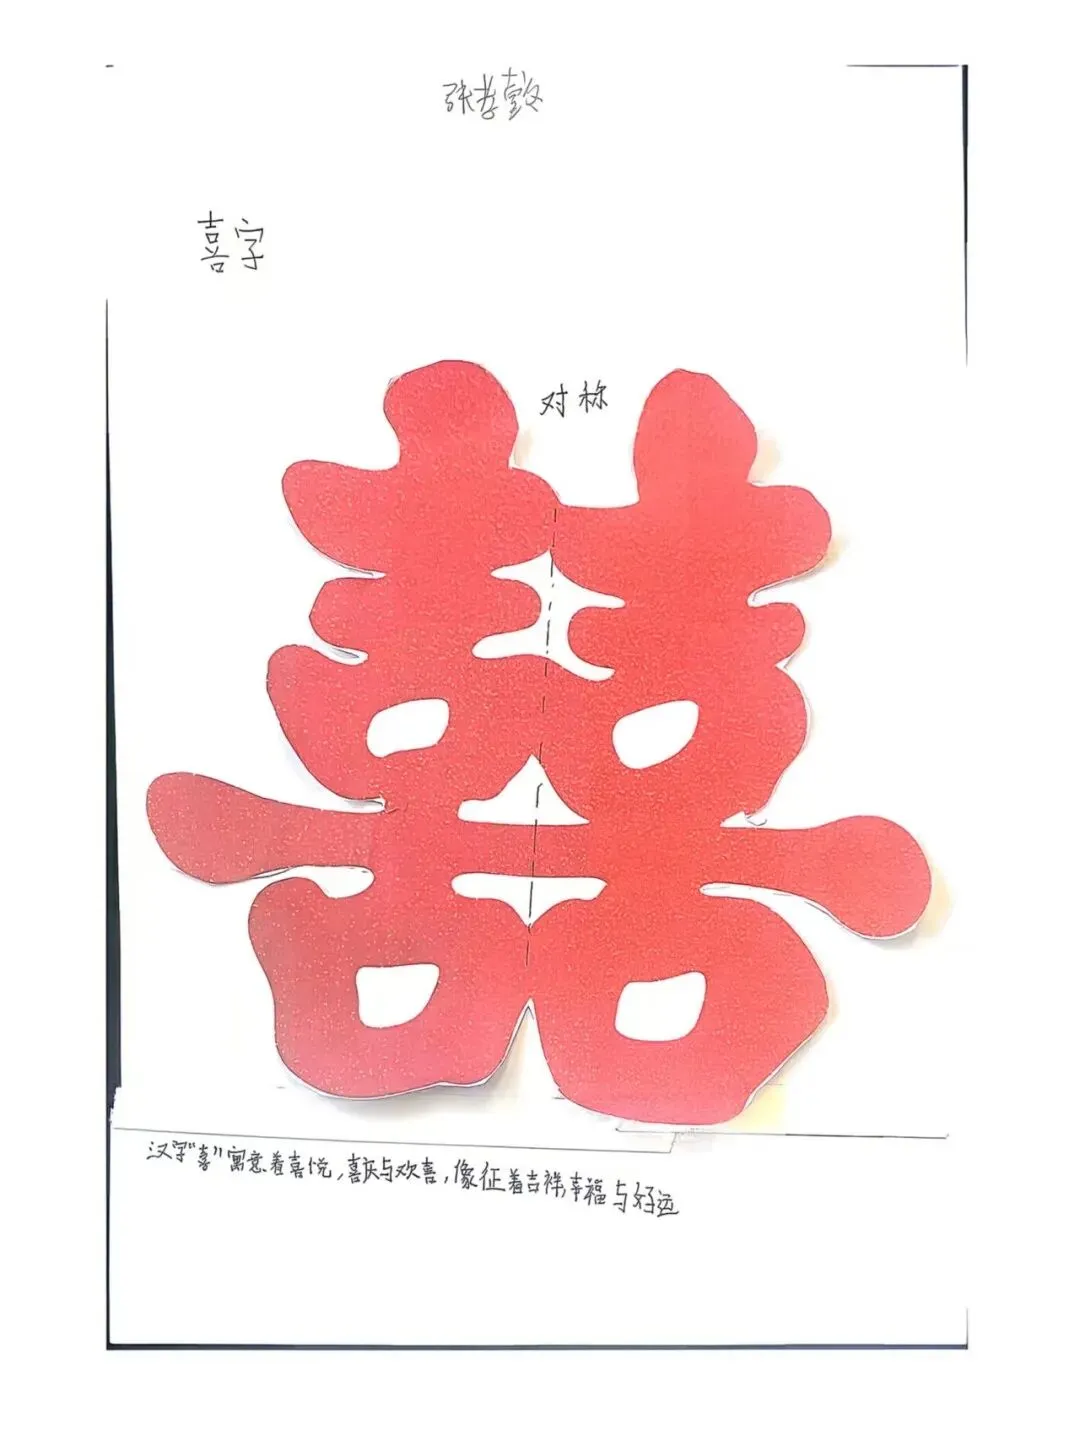 张孝
喜字
对称
囍
汉字"喜"寓意着喜悦,喜庆与欢喜,像征着吉祥,幸福与好运